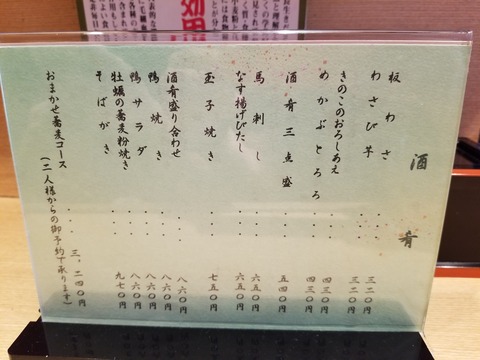 酒肴
板わさ・・・三二〇円
わさび芋・・・三二〇円
きのこのおろしあえ・・・四三〇円
めかぶとろろ・・・四三〇円
酒肴三点盛・・・五四〇円
馬刺し・・・六五〇円
なす揚げびたし・・・六五〇円
玉子焼き・・・七五〇円
酒肴盛り合わせ・・・八六〇円
鴨焼き・・・八六〇円
鴨サラダ・・・八六〇円
牡蠣の蕎麦粉焼き・・・八六〇円
そばがき・・・九七〇円
おまかせ蕎麦コース・・・三、二四〇円
(二人様からの御予約で承ります)